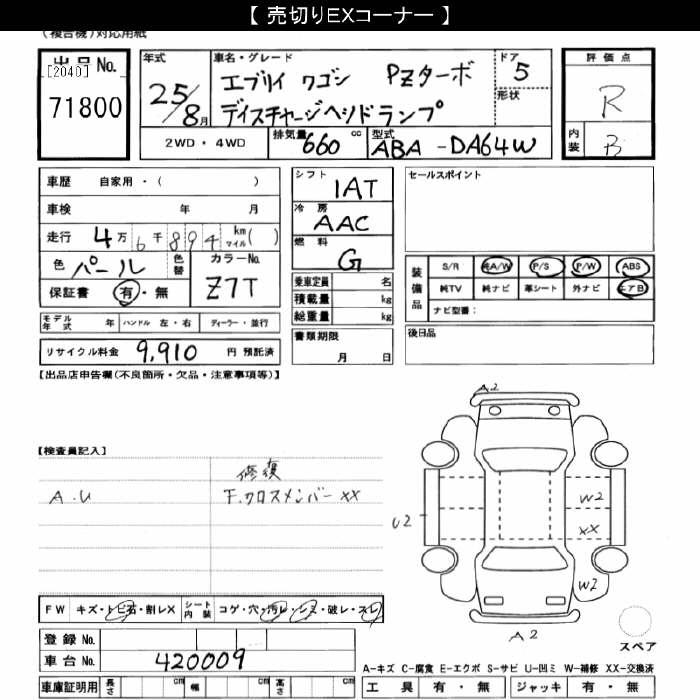 【 売切りEXコーナー 】
(複合機)対応用紙
出品No.
[2040]
71800
年式
25/8月
車名・グレード
エブリイ ワゴン PZターボ
ディスチャージヘッドランプ
ドア
5
形状
評価点
R
内装
B
2WD・4WD
排気量 660 cc
型式 ABA-DA64W
車歴 自家用・( )
車検 年 月
走行 4万6千894 km マイル( )
色 パール 色替
カラーNo. Z7T
保証書 有・無
シフト IAT
冷房 AAC
燃料 G
乗車定員 名
積載量 kg
総重量 kg
セールスポイント
装備品
S/R 純A/W P/S P/W ABS
純TV 純ナビ 革シート 外ナビ エアB
ナビ型番:
モデル年式 年 ハンドル 左・右 ディーラー・並行
リサイクル料金 9,910 円 預託済
書類期限
月 日
後日品
【出品店申告欄(不良箇所・欠品・注意事項等)】
【検査員記入】
A.U
修復
F.クロスメンバー XX
A2
U2
W2
XX
W2
A2
スペア
FW キズ・トビ石・割レX
シート内装 コゲ・穴・汚レ・シミ・破レ・スレ
登録No.
車台No. 420009
車庫証明用 長さ cm 幅 cm 高さ cm
A-キズ C-腐食 E-エクボ S-サビ U-凹ミ W-補修 XX-交換済
工具 有・無 ジャッキ 有・無